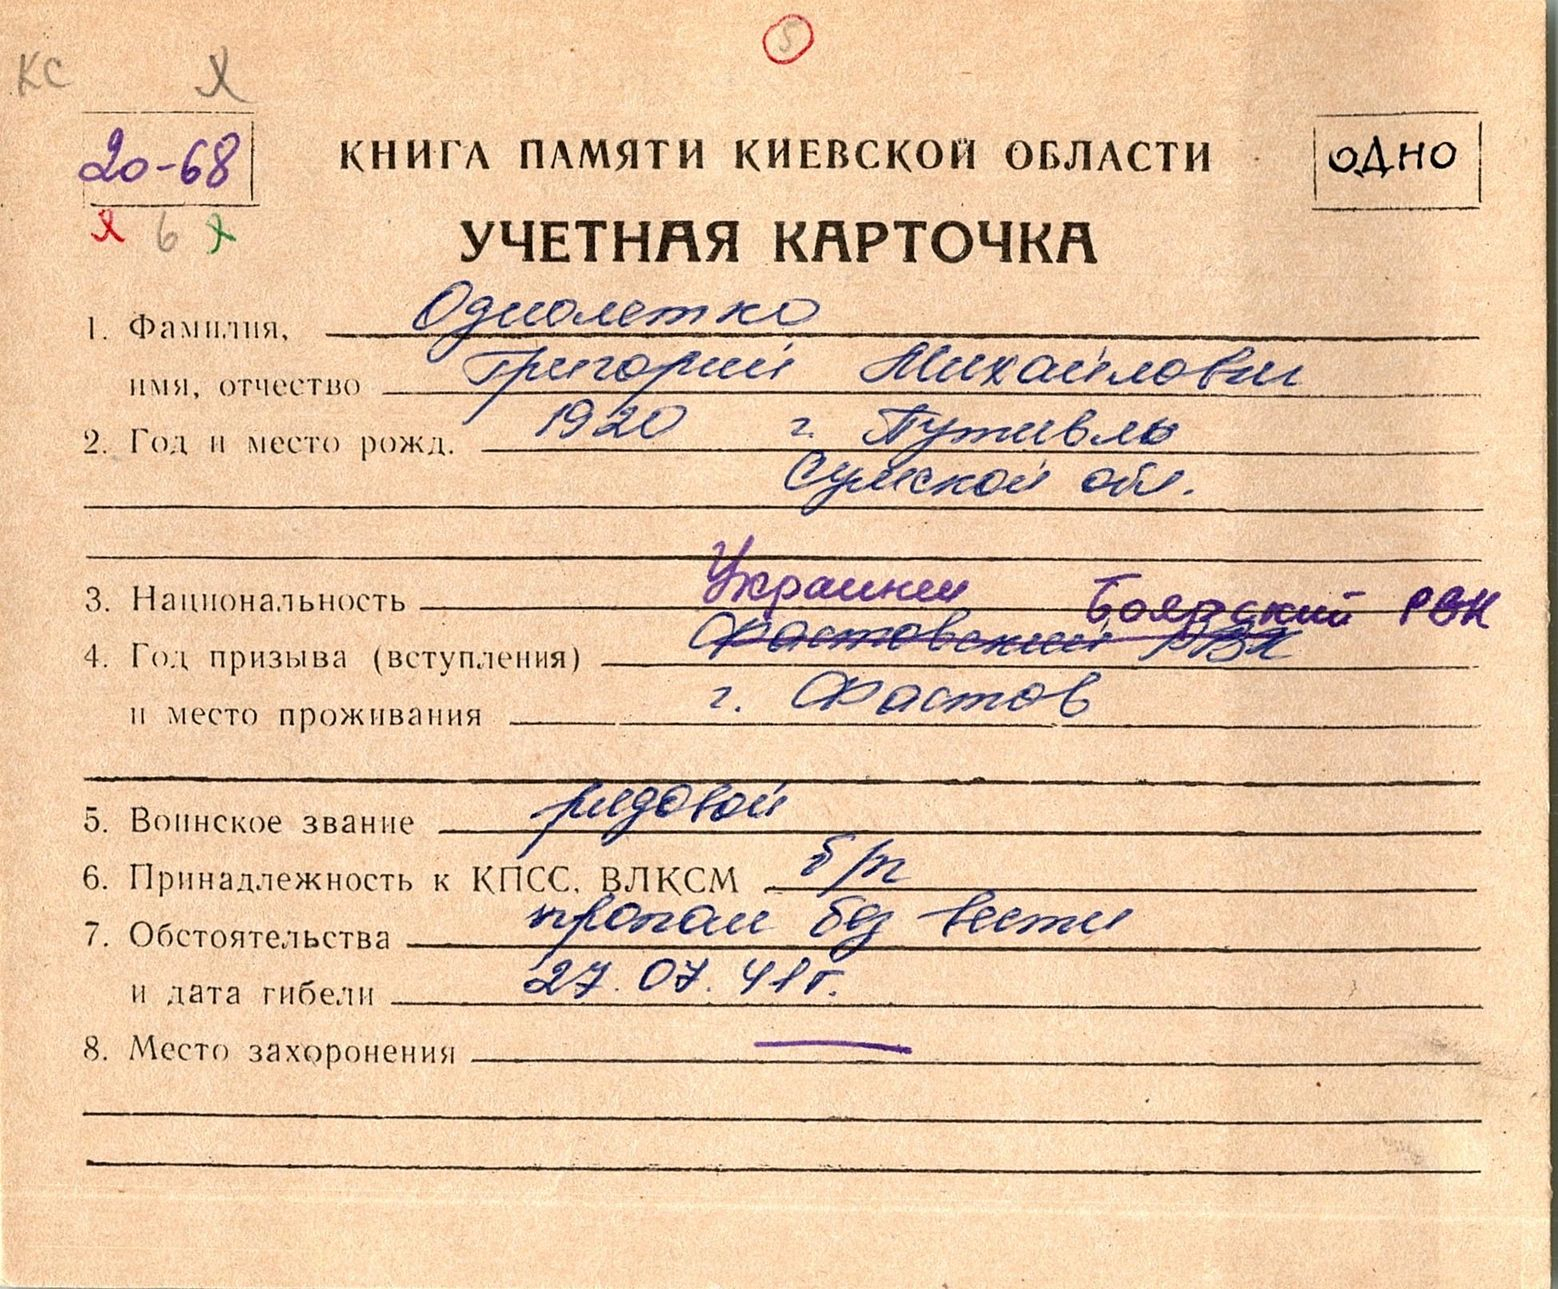 5
КС X
20-68 КНИГА ПАМЯТИ КИЕВСКОЙ ОБЛАСТИ ОДНО
X 6 X
УЧЕТНАЯ КАРТОЧКА
1. Фамилия, Однолетко
имя, отчество Григорий Михайлович
2. Год и место рожд. 1920 г. Путивль
Сумской обл.
3. Национальность Украинец Боярский РВК
4. Год призыва (вступления) Фастовский РВК
и место проживания г. Фастов
5. Воинское звание рядовой
6. Принадлежность к КПСС, ВЛКСМ б/п
7. Обстоятельства пропал без вести
и дата гибели 27.07.41г.
8. Место захоронения —